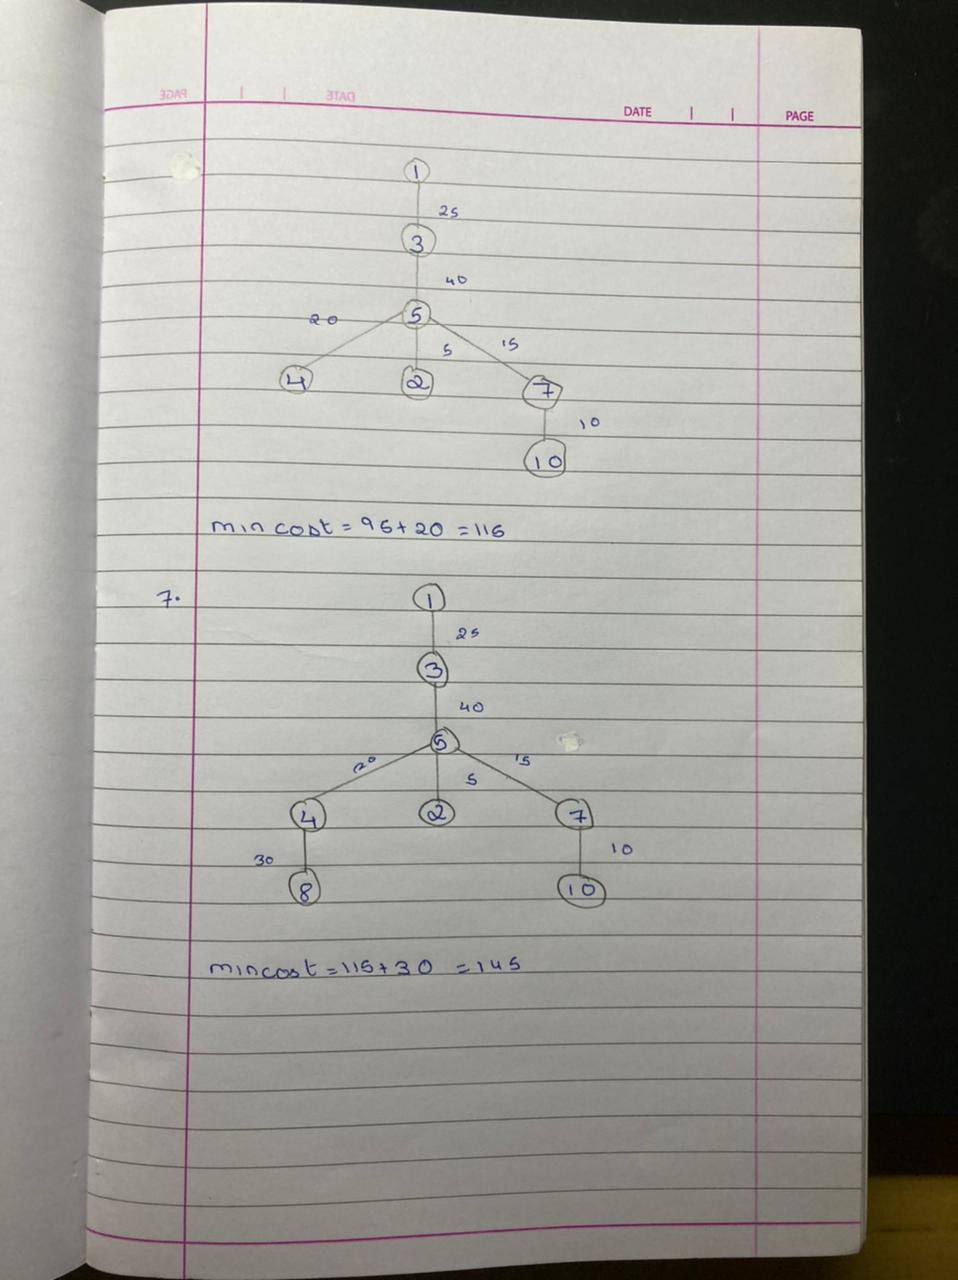 PAGE DATE
DATE PAGE
1
25
3
40
20 5
5 15
4 2 7
10
10
min cost = 95 + 20 = 115
7. 1
25
3
40
5
20 5 15
4 2 7
30 10
8 10
min cost = 115 + 30 = 145